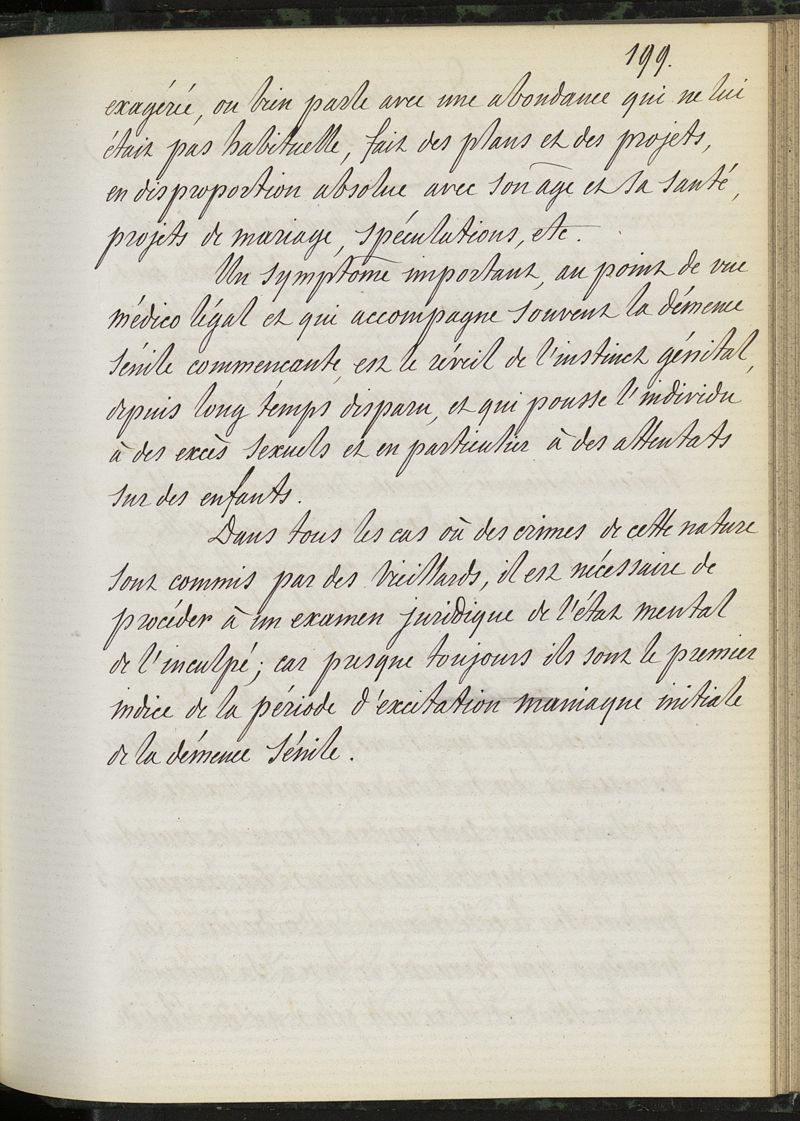 199.
exagérée, ou bien parle avec une abondance qui ne lui
était pas habituelle, fait des plans et des projets,
en disproportion absolue avec son âge et sa santé,
projets de mariage, spéculations, etc.
Un symptôme important, au point de vue
médico légal et qui accompagne souvent la démence
sénile commencante, est le réveil de l'instinct génital,
depuis long temps disparu, et qui pousse l'individu
à des excès sexuels et en particulier à des attentats
sur des enfants.
Dans tous les cas où des crimes de cette nature
sont commis par des vieillards, il est nécessaire de
procéder à un examen juridique de l'état mental
de l'inculpé; car presque toujours ils sont le premier
indice de la période d'excitation maniaque initiale
de la démence sénile.